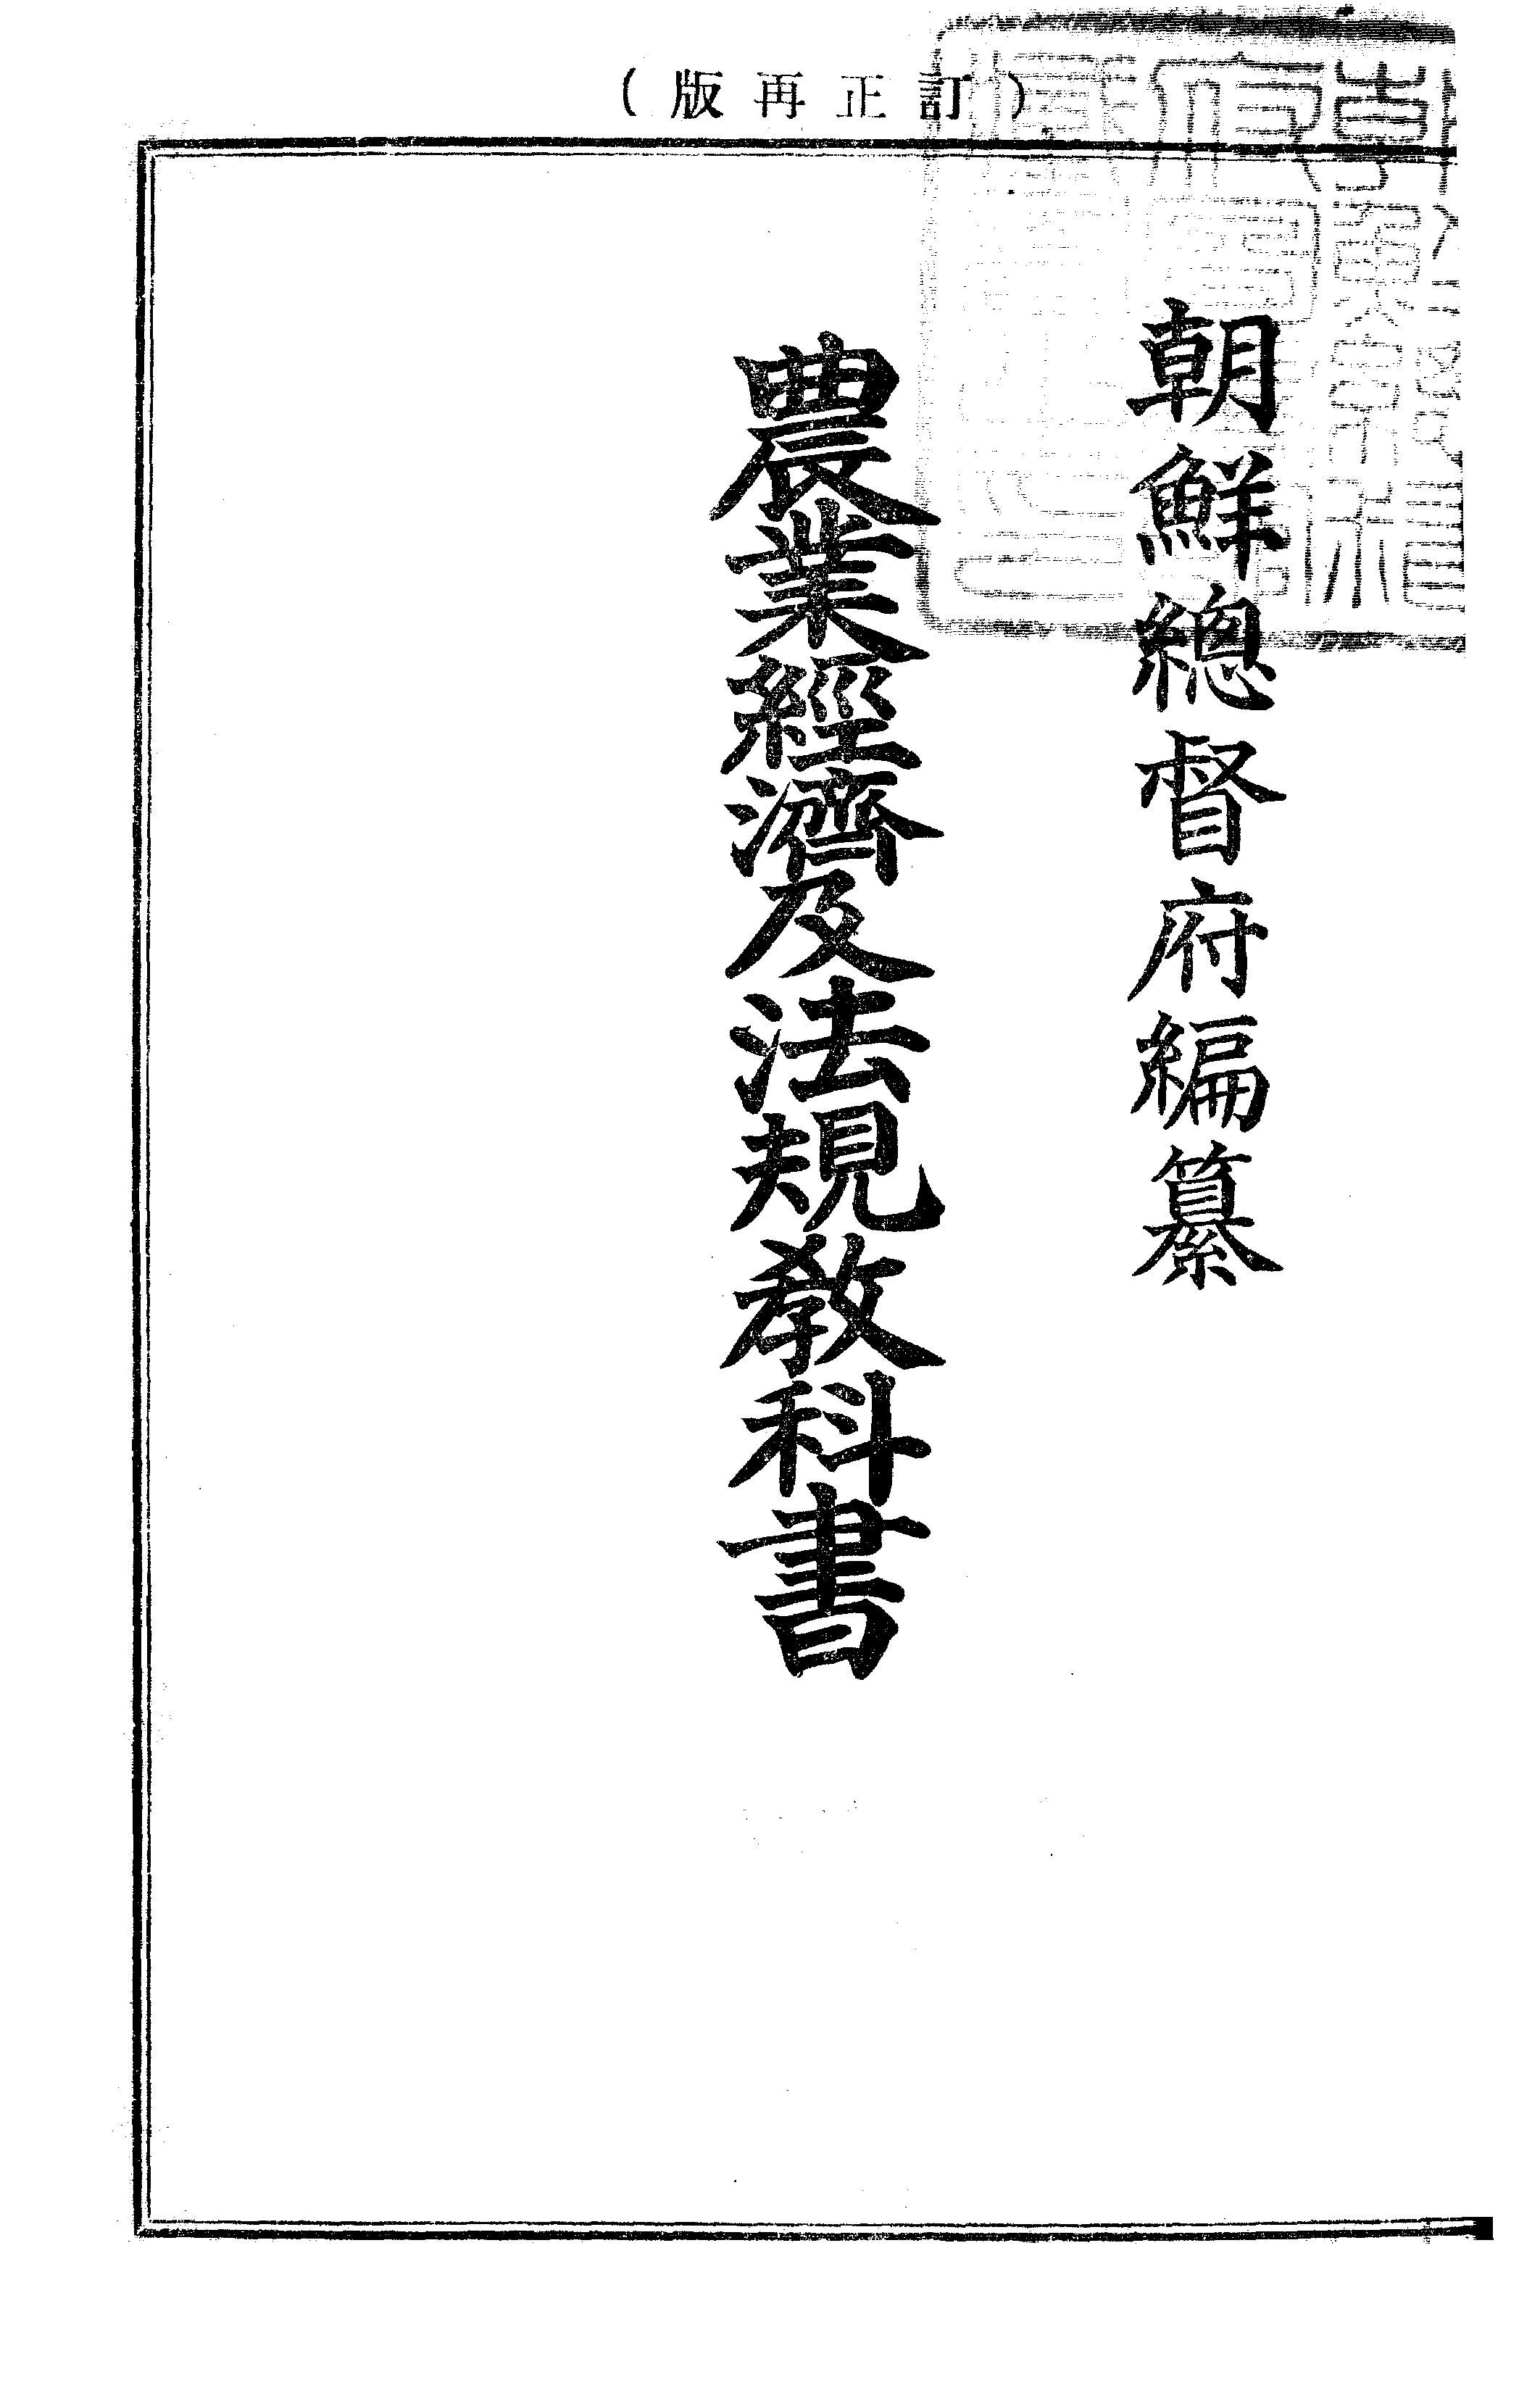 (訂正再版)
朝鮮總督府編纂
農業經濟及法規教科書